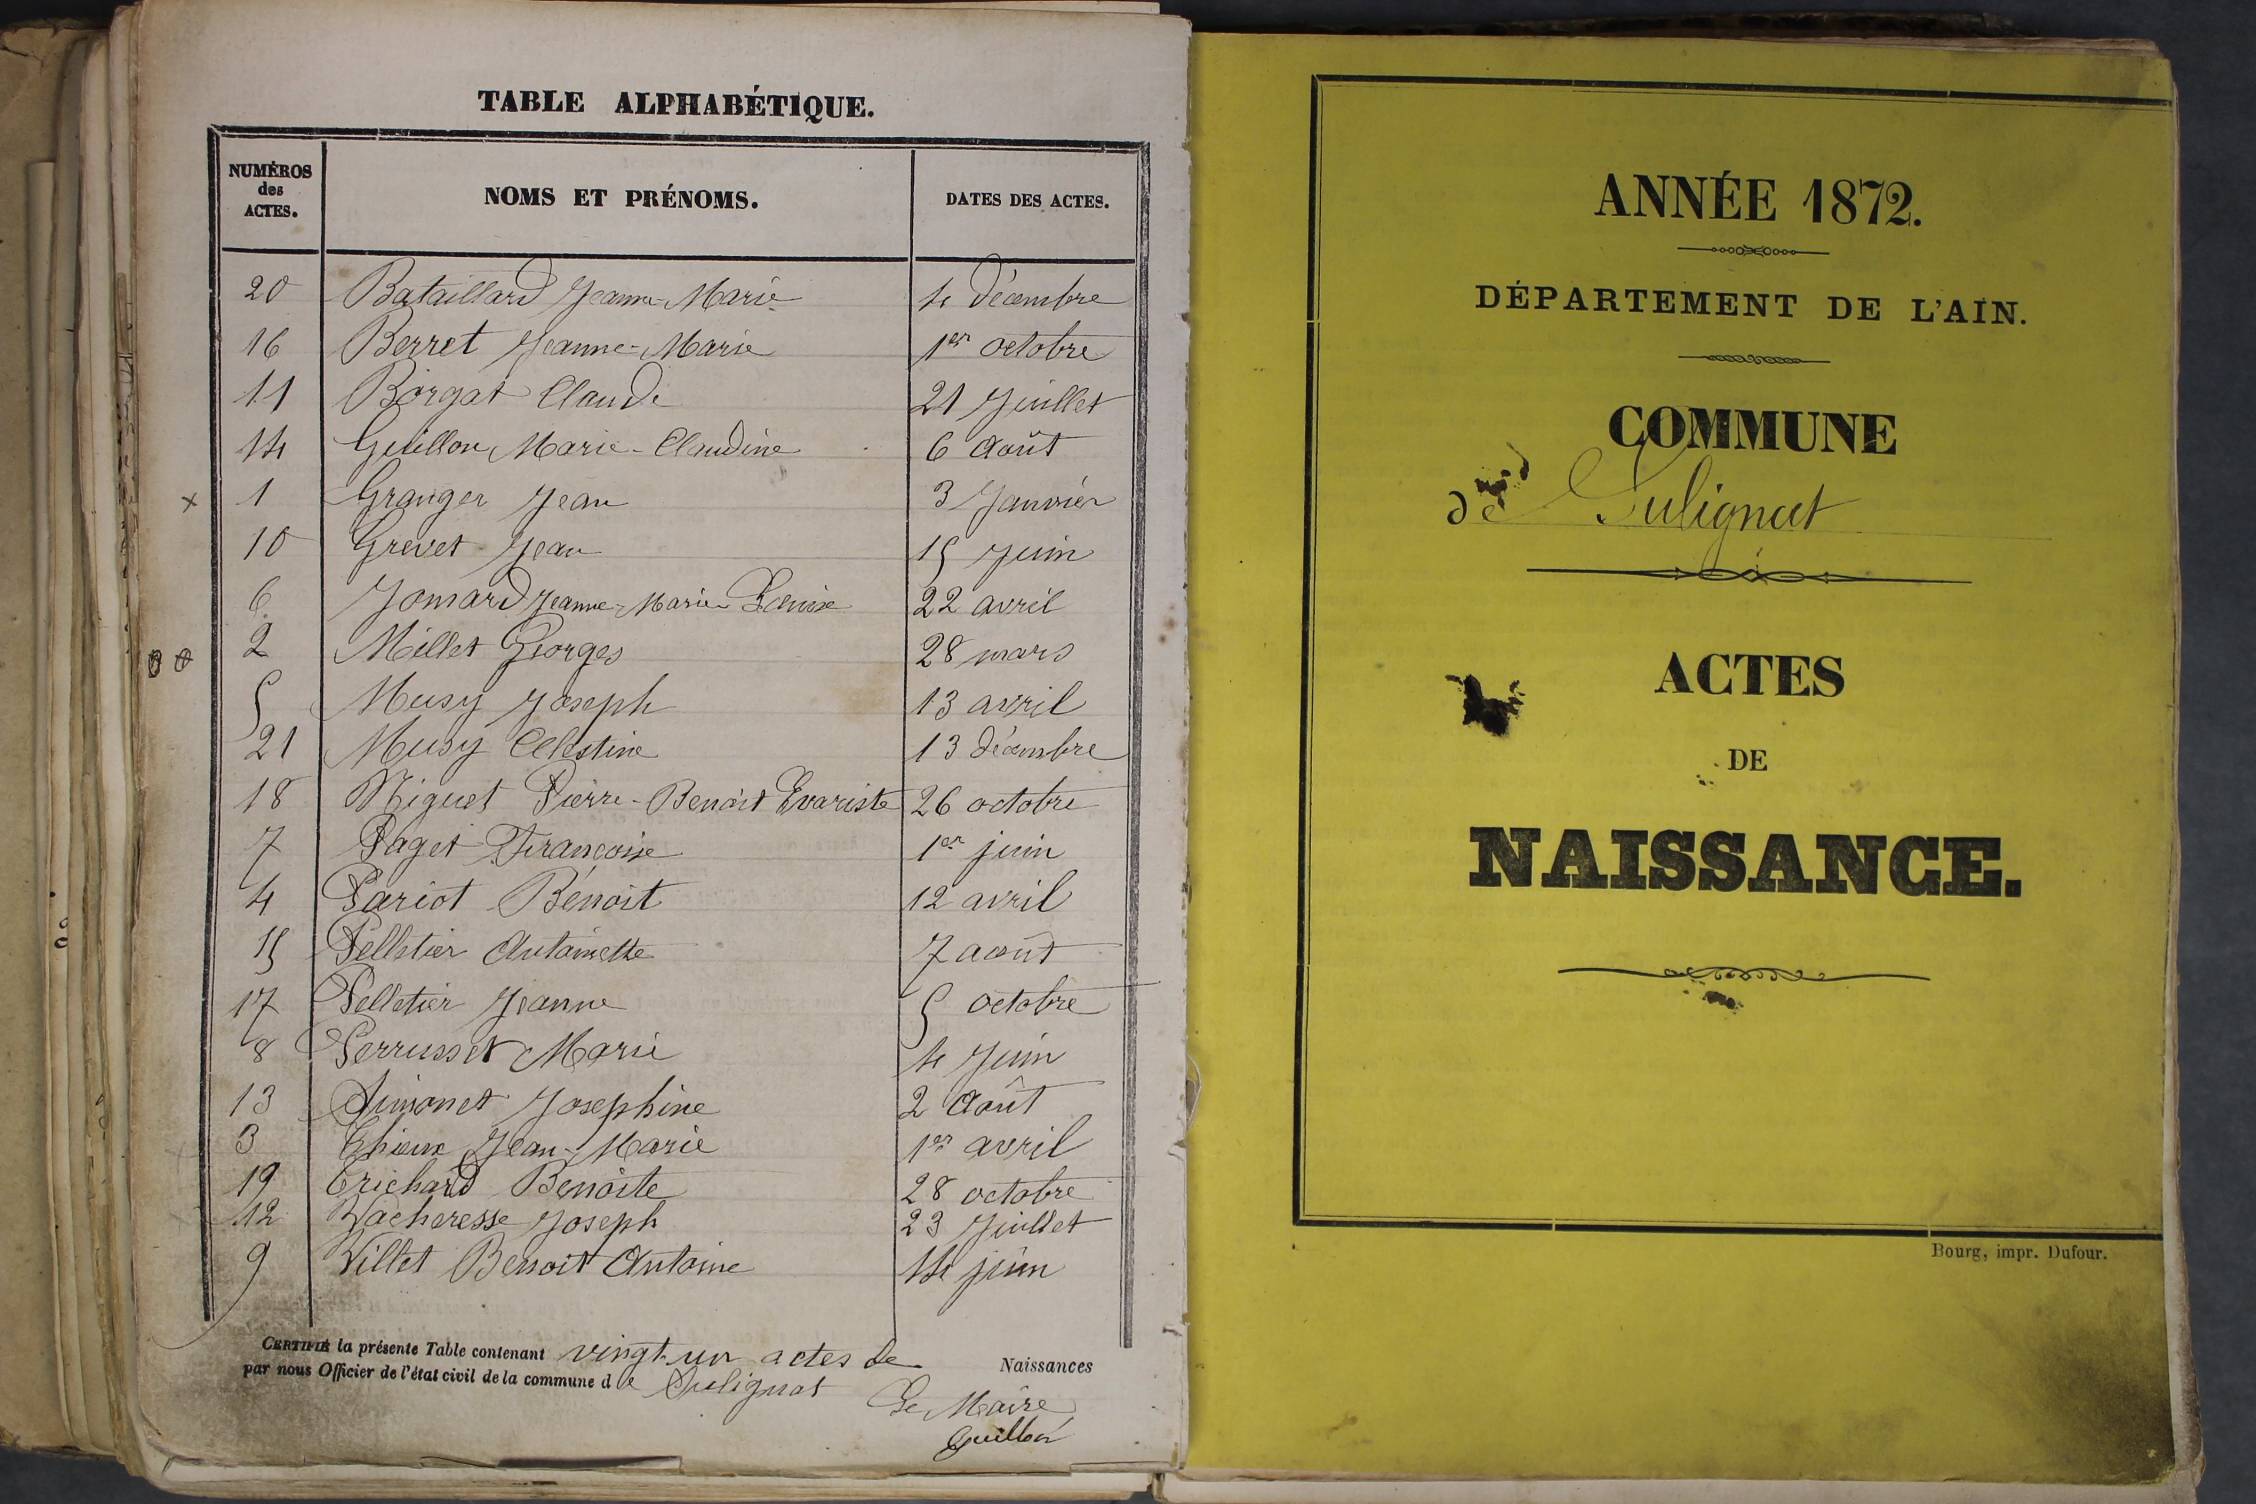 TABLE ALPHABÉTIQUE.
NUMÉROS des ACTES. NOMS ET PRÉNOMS. DATES DES ACTES.
20 Bataillard Jeanne-Marie 4 décembre
16 Berret Jeanne-Marie 1er octobre
11 Borgat Claude 21 Juillet
14 Guillon Marie-Claudine 6 Août
x 1 Granger Jean 3 Janvier
10 Grevet Jean 15 Juin
6 Jomard Jeanne-Marie Louise 22 avril
2 Millet Georges 28 mars
5 Musy Joseph 13 avril
21 Musy Célestine 13 décembre
18 Niguet Pierre-Benoit Evariste 26 octobre
7 Paget Françoise 1er juin
4 Pariot Bénoit 12 avril
15 Pelletier Antoinette 7 août
17 Pelletier Jeanne 5 octobre
8 Perrusset Marie 4 Juin
13 Simonet Joséphine 2 Août
3 Jean-Marie 1er avril
19 Trichard Benoite 28 octobre
12 Vacheresse Joseph 23 Juillet
9 Villet Benoit Antoine 14 juin
CERTIFIÉ la présente Table contenant vingt-un actes de Naissances
par nous Officier de l'état civil de la commune de Sulignat
Le Maire
Guillon
ANNÉE 1872.
DÉPARTEMENT DE L'AIN.
COMMUNE
de Sulignat
ACTES
DE
NAISSANCE.
Bourg, impr. Dufour.